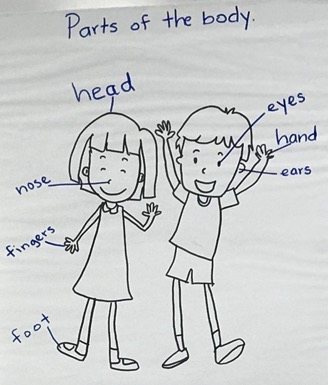 Parts of the body.
head
eyes
hand
ears
nose
fingers
foot